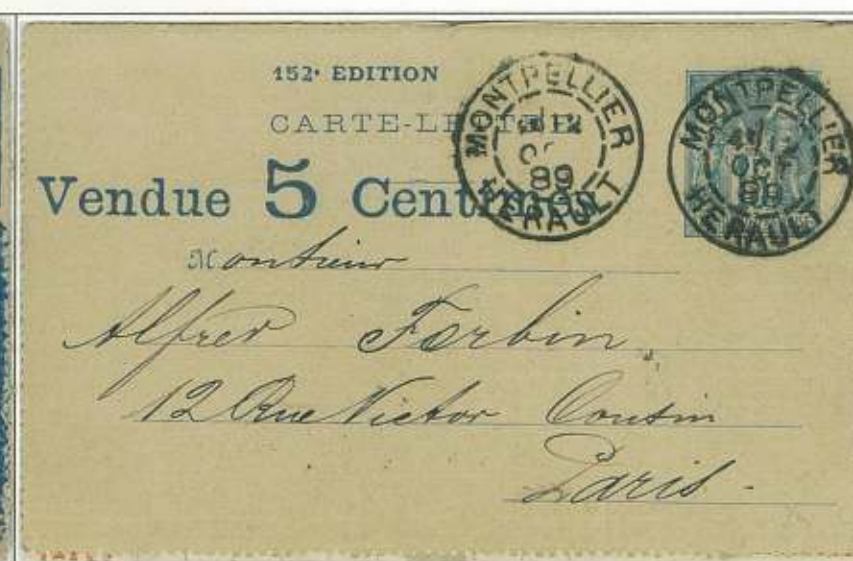 152ᵉ EDITION
CARTE-LETTRE
Vendue 5 Centimes
MONTPELLIER
OCT
89
HERAULT
MONTPELLIER
OCT
89
HERAULT
Monsieur
Alfred Forbin,
12 Rue Victor Cousin
Paris.